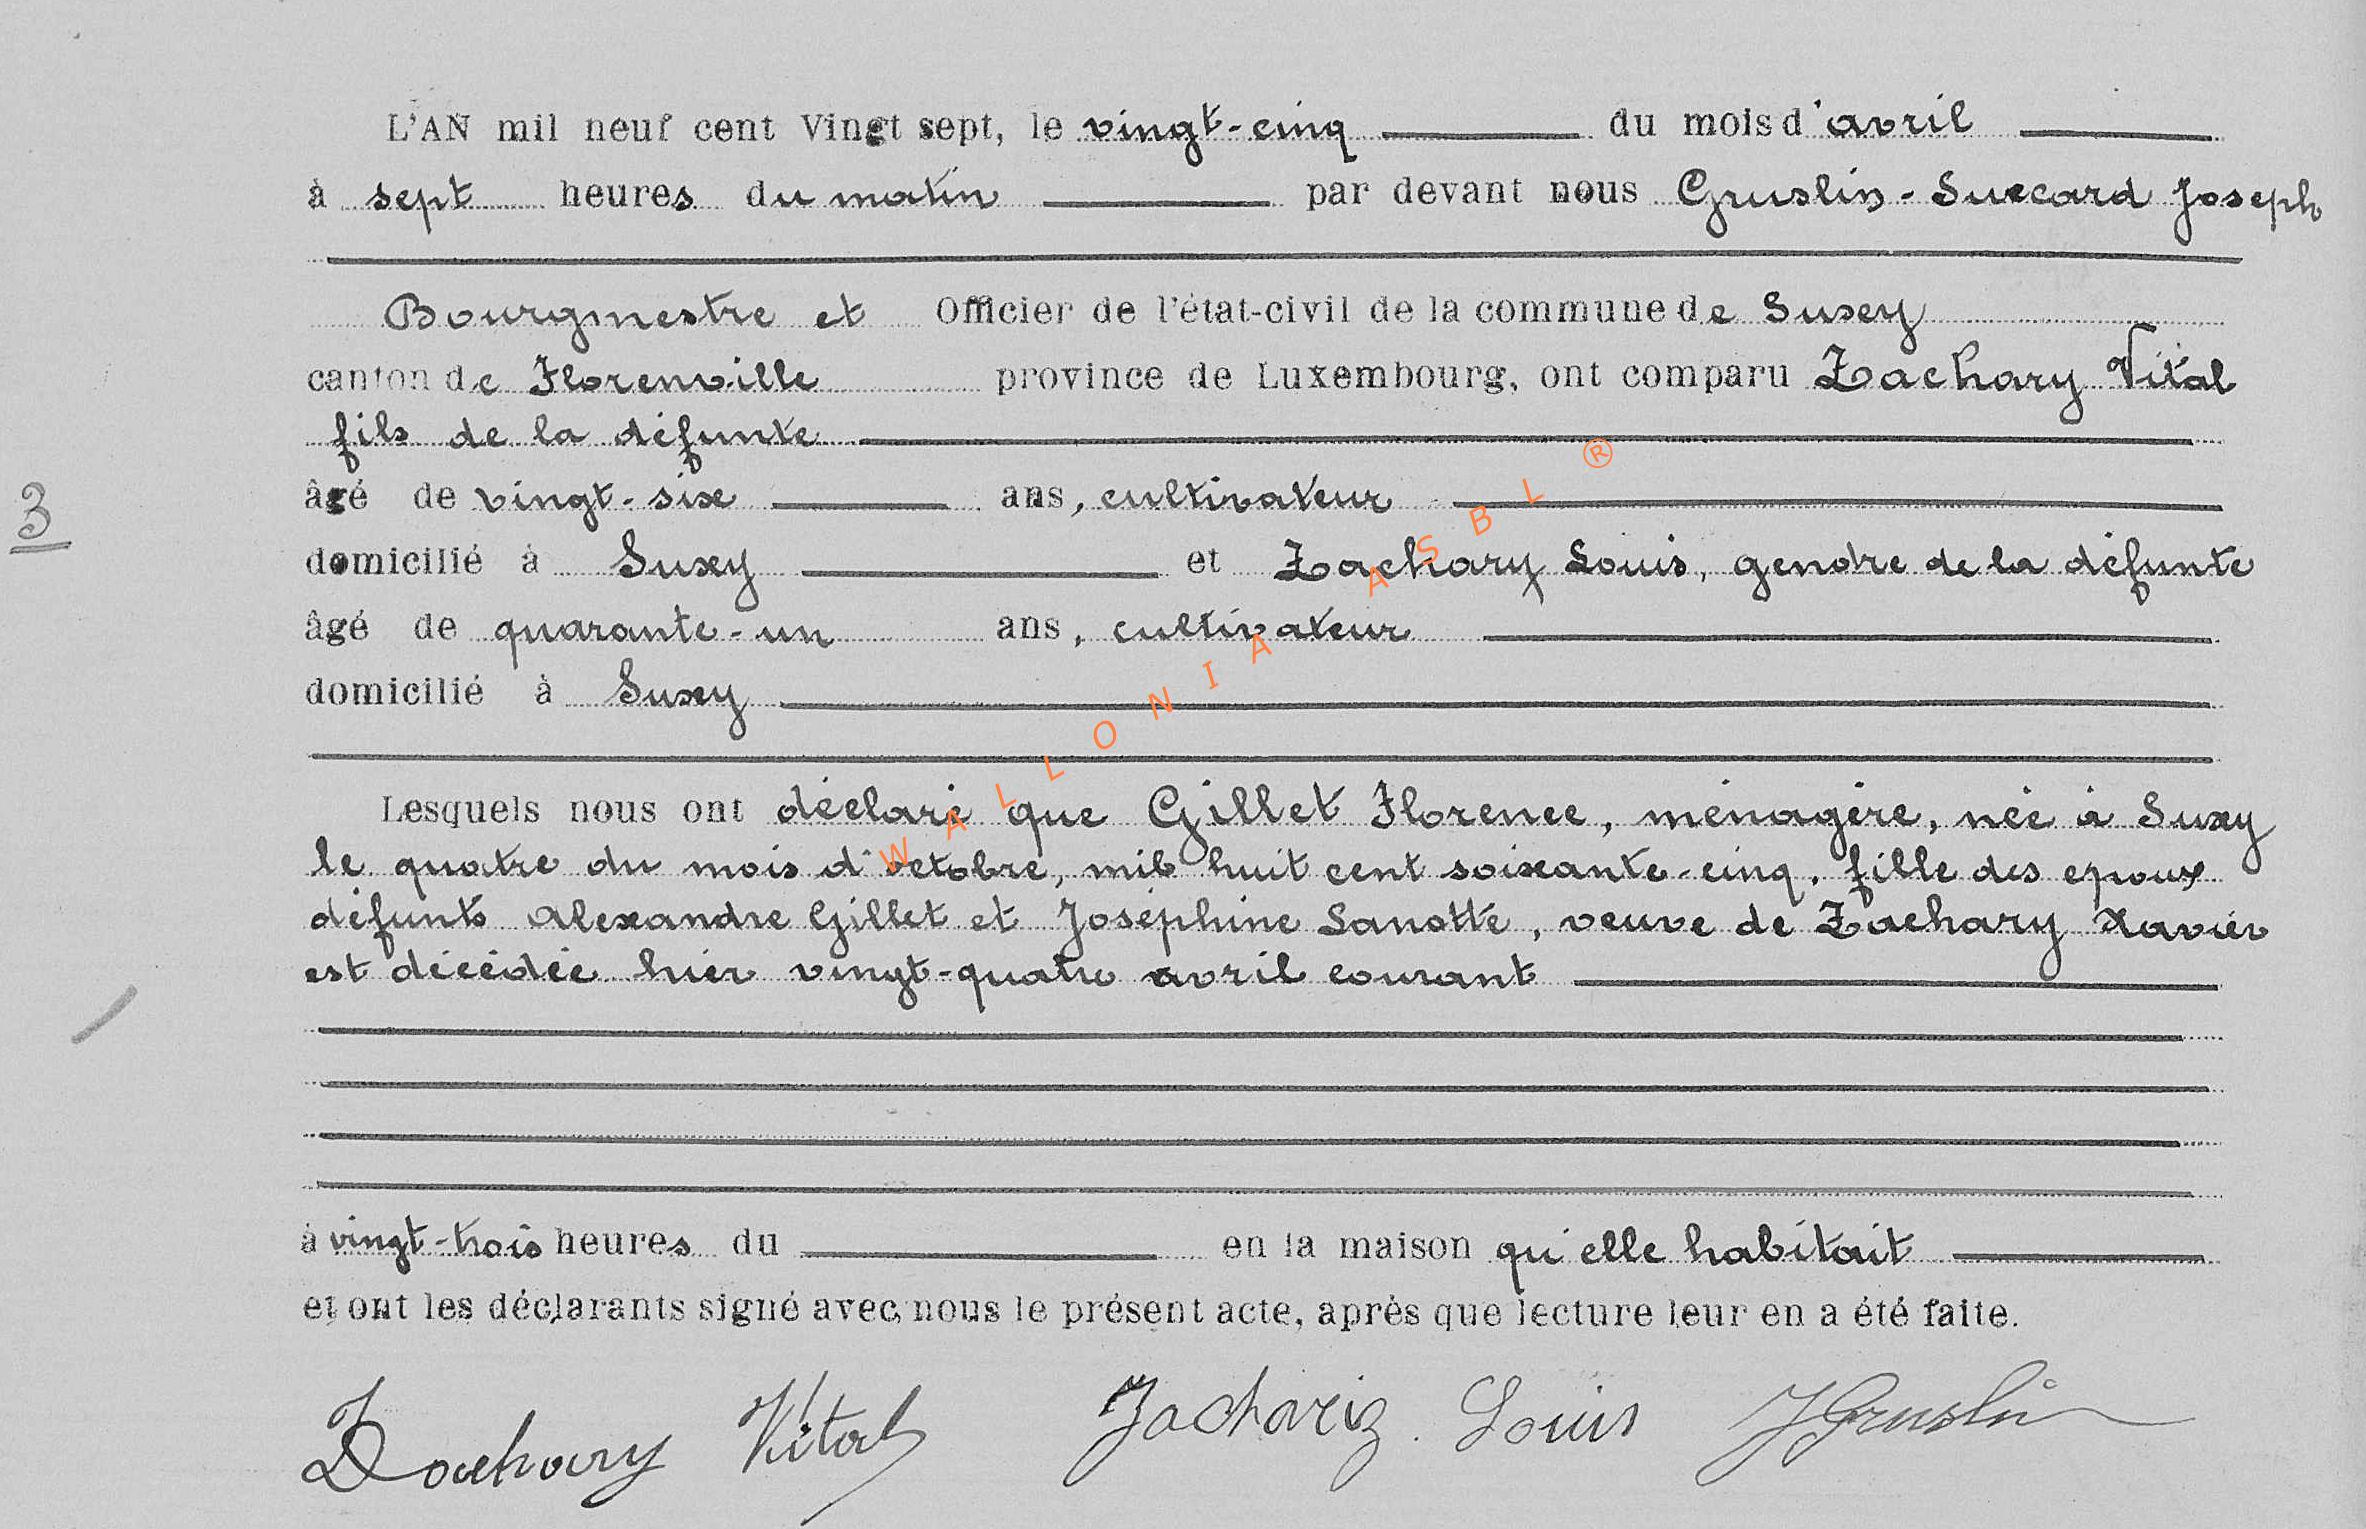 L'AN mil neuf cent Vingt sept, le vingt-cinq du mois d'avril
à sept heures du matin par devant nous Gruslin-Suzcard Joseph
Bourgmestre et Officier de l'état-civil de la commune de Suxey
canton de Florenville province de Luxembourg, ont comparu Zachary Vital
fils de la défunte
âgé de vingt-six ans, cultivateur
3
domicilié à Suxy et Zachary Louis, gendre de la défunte
âgé de quarante-un ans, cultivateur
domicilié à Suxy
Lesquels nous ont déclaré que Gillet Florence, ménagère, née à Suxy
le quatre du mois d'octobre, mil huit cent soixante-cinq, fille des epoux
défunts Alexandre Gillet et Joséphine Lanotte, veuve de Zachary Xavier
est décédée hier vingt-quatre avril courant
à vingt-trois heures du en la maison qu'elle habitait
et ont les déclarants signé avec nous le présent acte, après que lecture leur en a été faite.
Zachary Vital Zachariz Louis JGruslin
WALLONIA ASBL ®